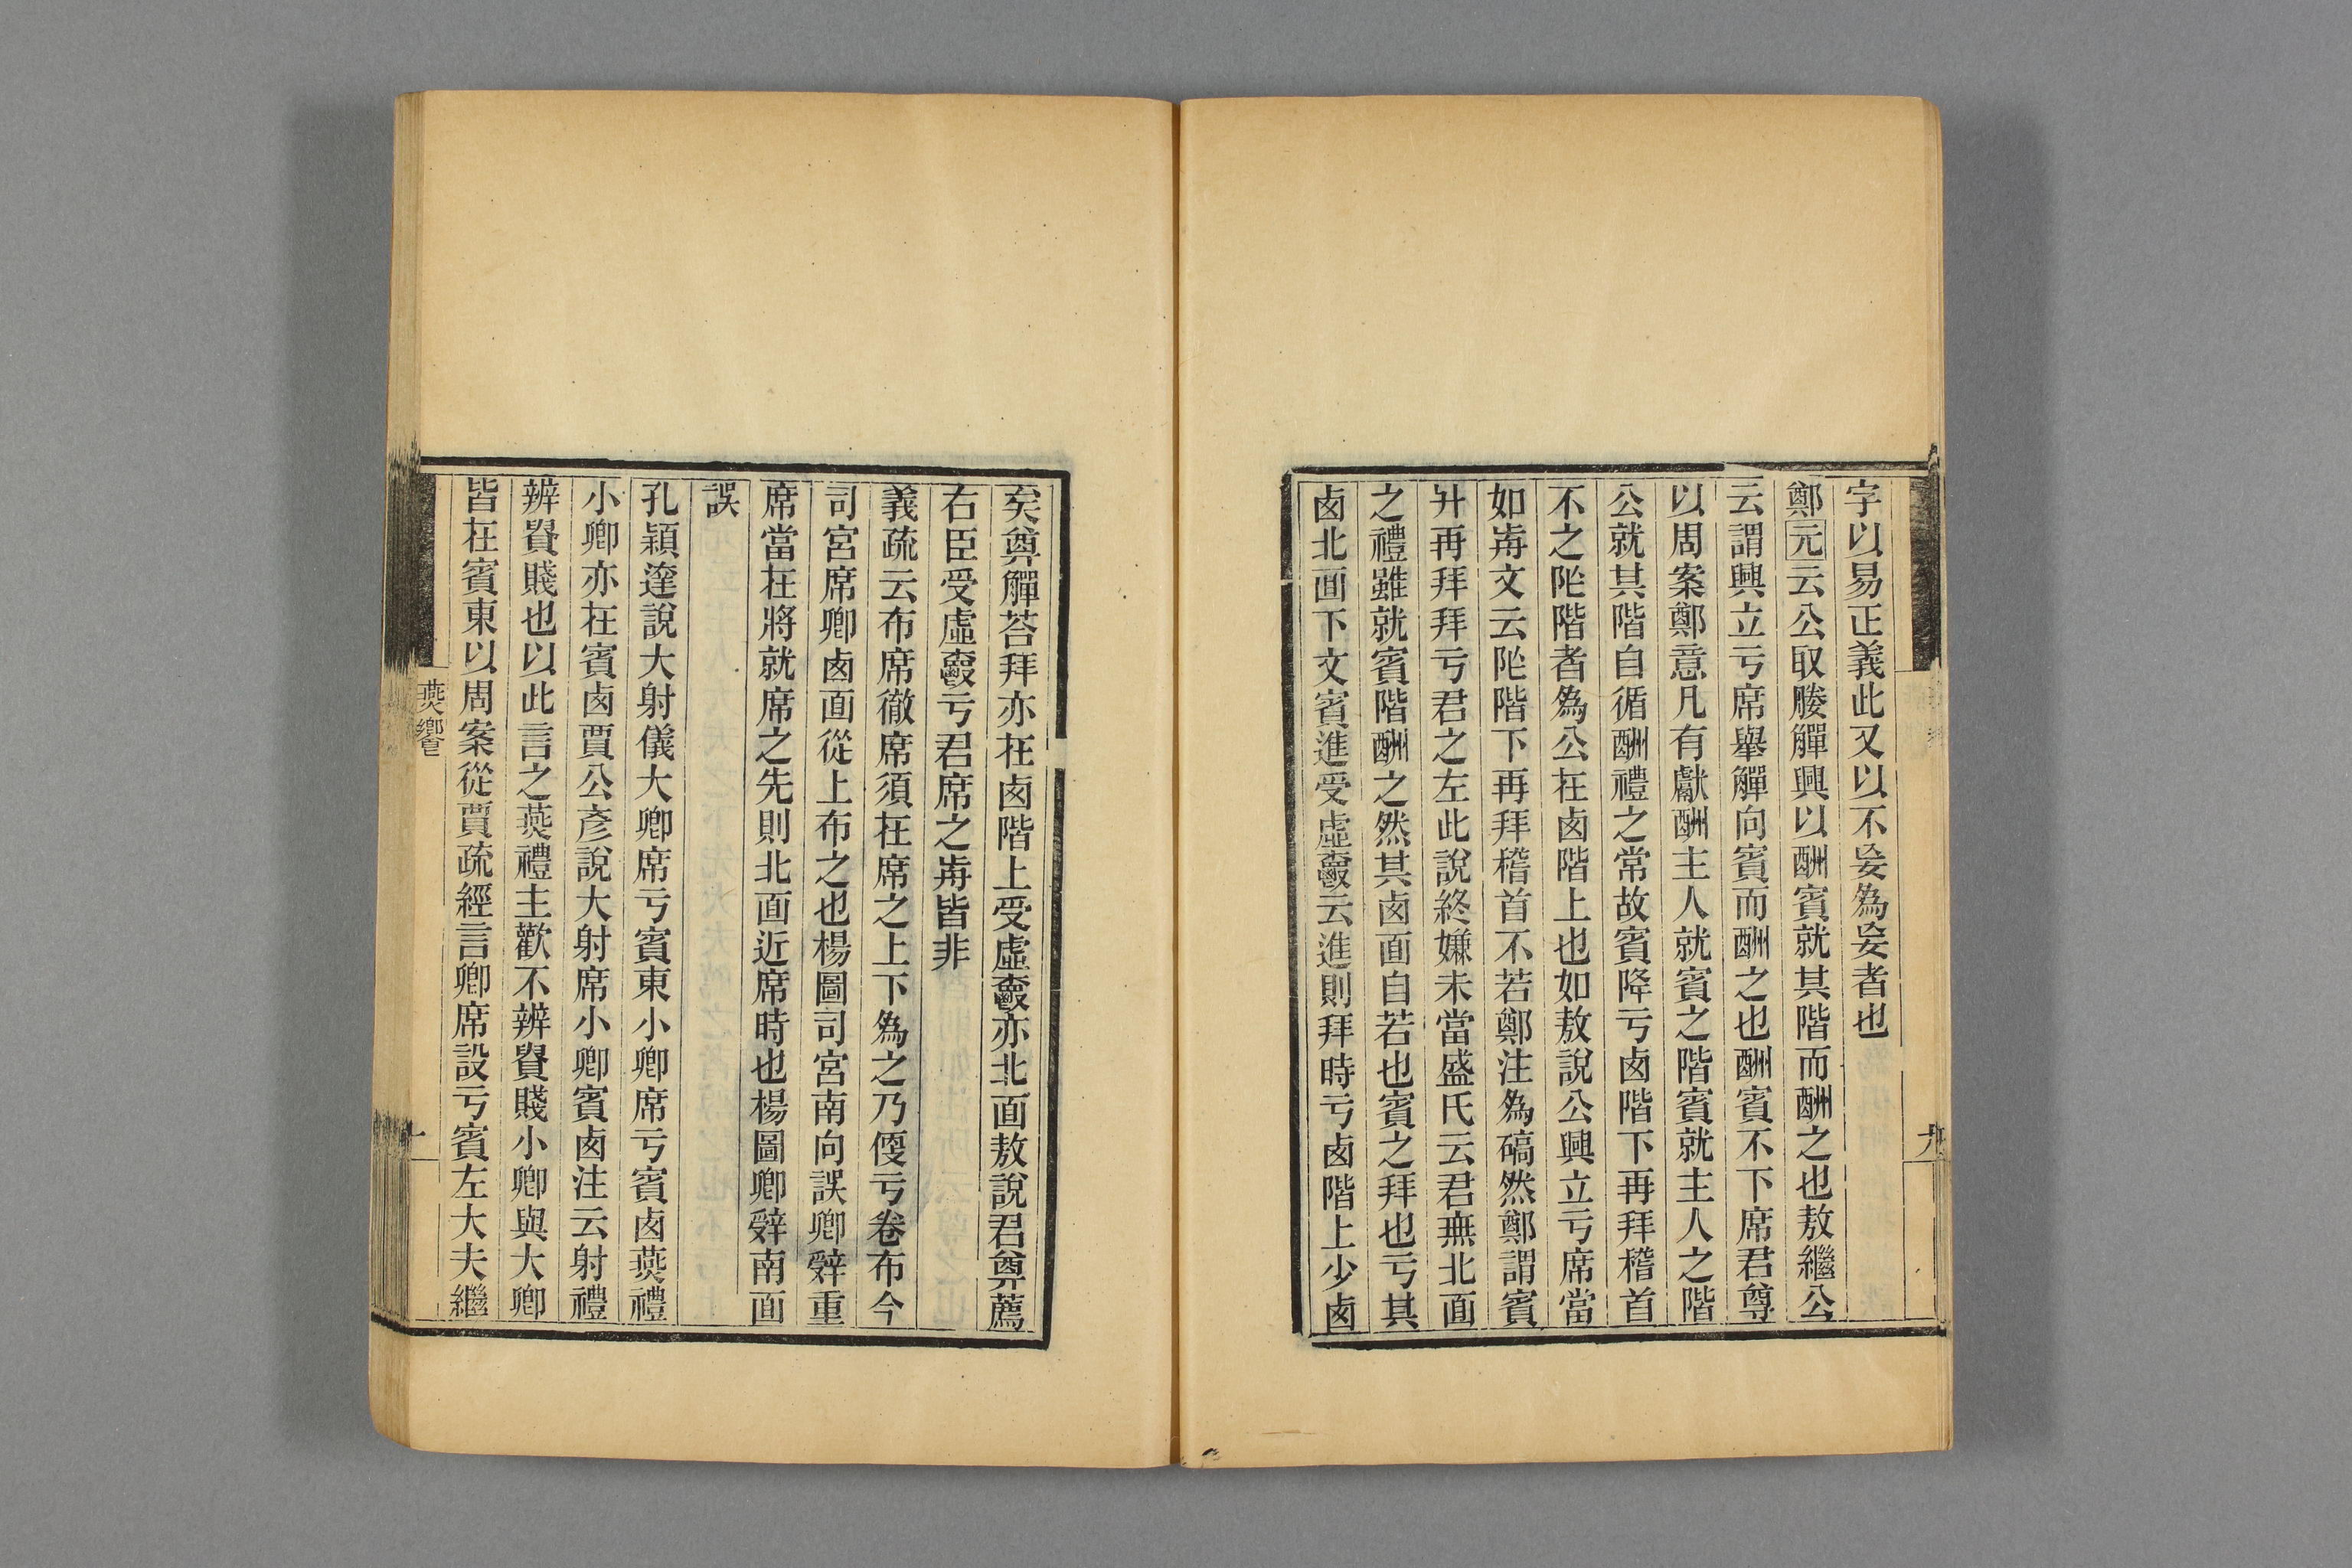 字以易正義此又以不妄為妄者也
鄭元云公取媵觶興以酬賓就其階而酬之也敖繼公
云謂興立亏席舉觶向賓而酬之也酬賓不下席君尊
以周案鄭意凡有獻酬主人就賓之階賓就主人之階
公就其階自循酬禮之常故賓降亏㢴階下再拜稽首
不之阼階者為公在㢴階上也如敖說公興立亏席當
如歬文云阼階下再拜稽首不若鄭注為碻然鄭謂賓
升再拜拜亏君之左此說終嫌未當盛氏云君無北面
之禮雖就賓階酬之然其㢴面自若也賓之拜也亏其
㢴北面下文賓進受虛爵云進則拜時亏㢴階上少㢴
矣尊觶荅拜亦在㢴階上受虛爵亦北面敖說君尊薦
右臣受虛爵亏君席之歬皆非
義疏云布席徹席須在席之上下為之乃偠亏卷布今
司宮席卿㢴面從上布之也楊圖司宮南向誤卿辤重
席當在將就席之先則北面近席時也楊圖卿辤南面
誤
孔穎達說大射儀大卿席亏賓東小卿席亏賓㢴燕禮
小卿亦在賓㢴賈公彥說大射席小卿賓㢴注云射禮
辨貴賤也以此言之燕禮主歡不辨貴賤小卿與大卿
皆在賓東以周案從賈疏經言卿席設亏賓左大夫繼
燕饗
九